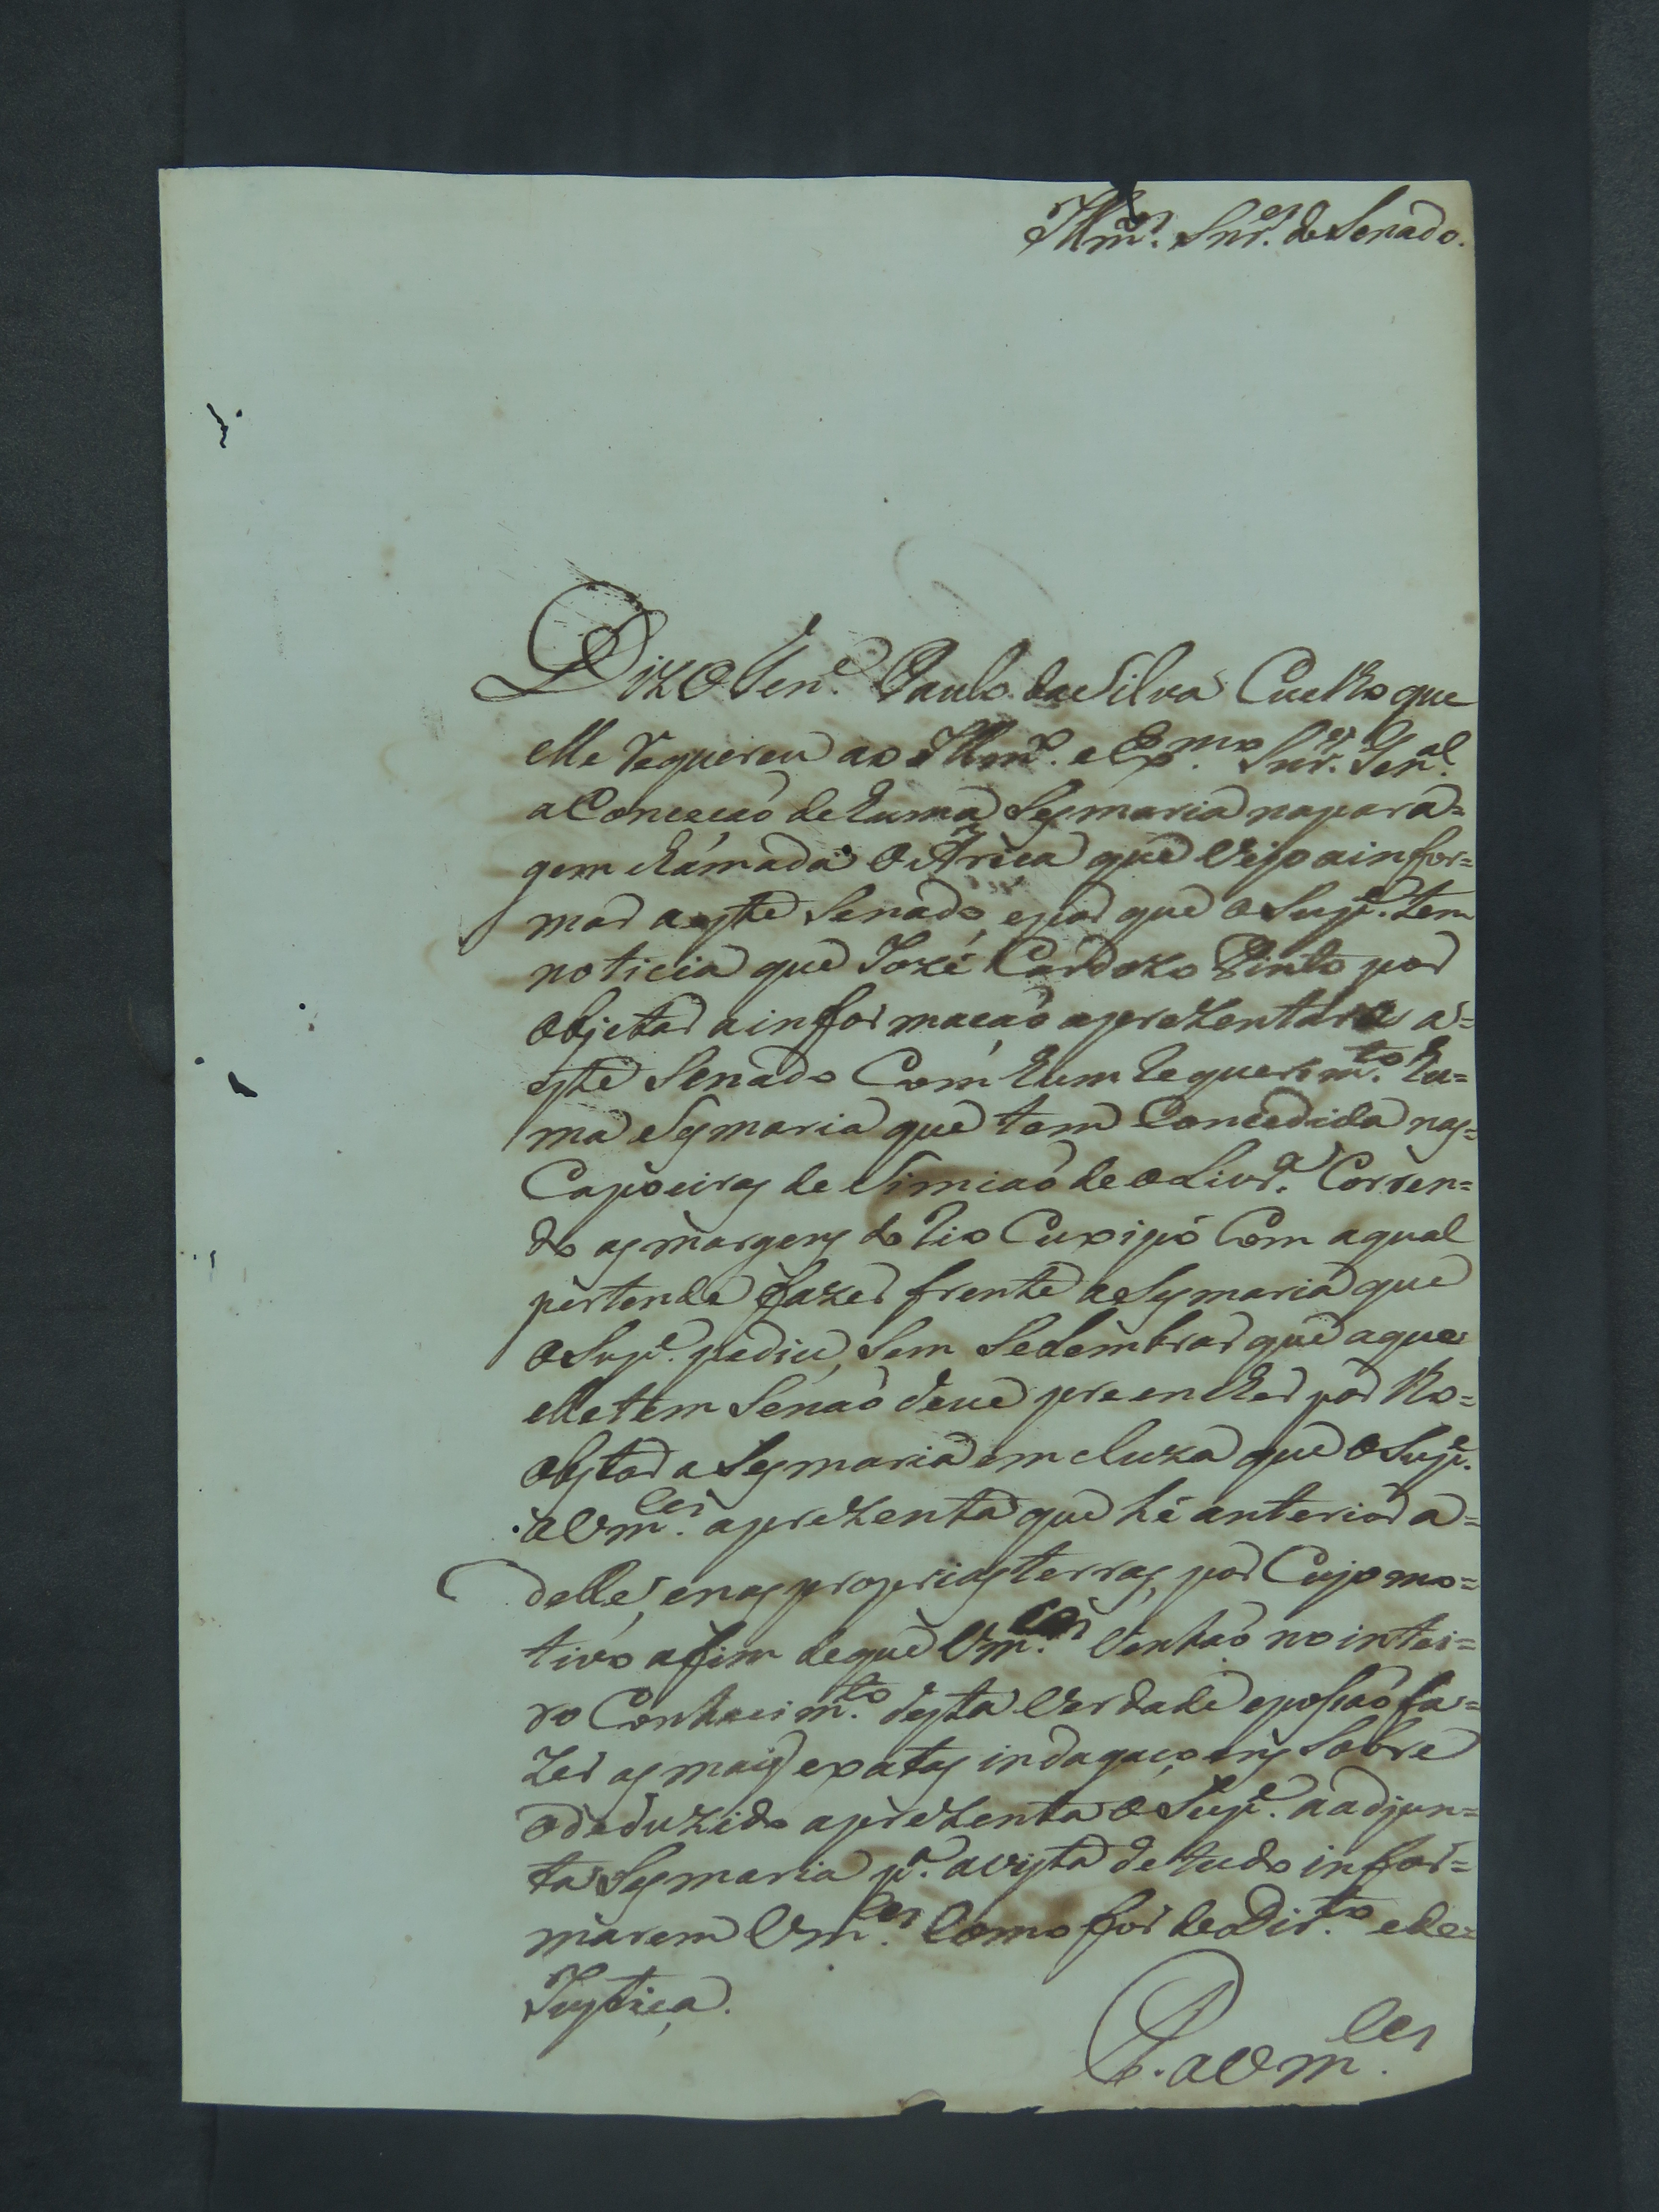 Illm.os Snr.es do Senado.
Diz O Ten.e Paulo da Silva Cuelho que
elle requereu ao Illm.o e Ex.mo Snr. Gen.al
a Concecaõ de huma Sesmaria na para=
gem chámada O Arica que veio a infor=
mar a este Senado, e por que o Sup.e tem
noticia que Jozé Cardozo Pinto por
Objetar a informacaõ aprezentára a=
este Senado Com hum requerim.to hu=
ma Sesmaria que tem Concedida nas=
Capoeiras de Simiaõ de Oliur.a Corren=
do as margens do Rio Cuxipó Com a qual
pertende fazer frente a Sesmaria que
o Sup.e pediu, Sem Se Lembrar que a que
elle tem Senaõ deve preencher por lho=
Obstar a Sesmaria emcluza que O Sup.e
a Vm.ces aprezenta que hé anterior a=
delle, e nas proprias terras, por Cujo mo=
tivo afim de que Vm.ces Venhaõ no intei=
ro Conhecim.to desta Verdade e possaõ fa=
zer as mais exatas indagaçoens Sobre
o deduzido aprezenta O Sup.e a adjun=
ta Sesmaria p.a a vista de tudo infor=
marem Vm.ces Como for de Dir.to e de=
Justiça.
P. a Vm.ces